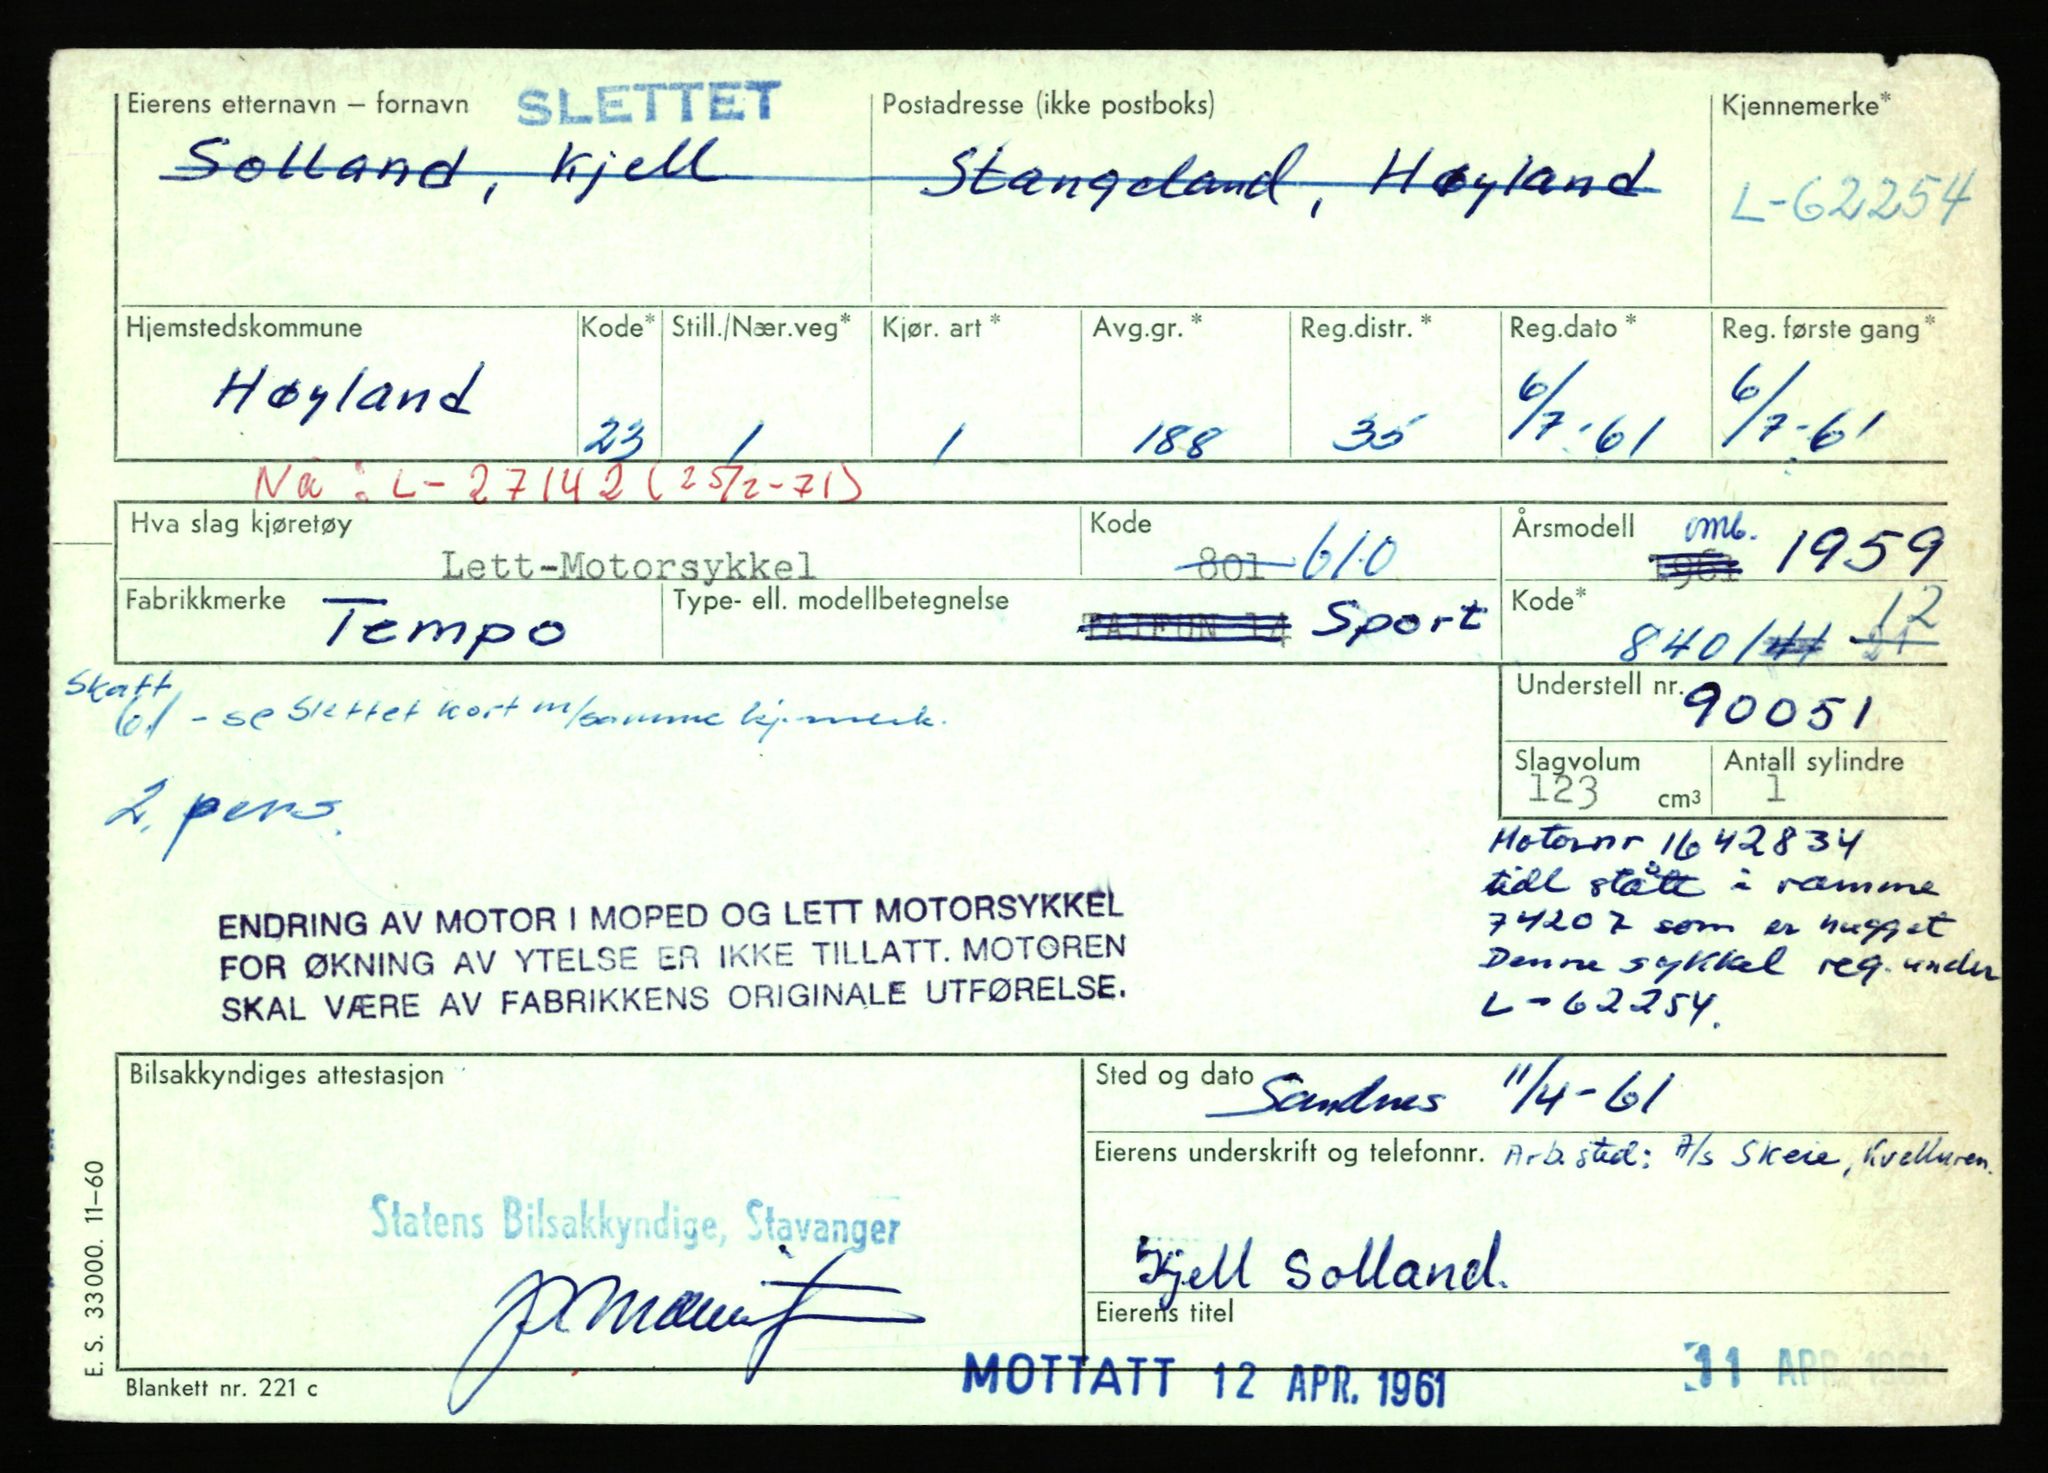 Eierens etternavn – fornavn SLETTET Postadresse (ikke postboks) Kjennemerke*
Solland, Kjell Stangeland, Høyland L-62254
Hjemstedskommune Kode* Still./Nær.veg* Kjør. art* Avg.gr.* Reg.distr.* Reg.dato* Reg. første gang*
Høyland 23 1 1 188 35 6/7-61 6/7-61
Nå: L-27142 (25/2-71)
Hva slag kjøretøy Kode Årsmodell omb.
Lett-Motorsykkel 801 610 1961 1959
Fabrikkmerke Tempo Type- ell. modellbetegnelse TAIFUN Sport Kode* 8401 12
Skatt
61 - se slettet kort m/samme kj.merk.
Understell nr. 90051
Slagvolum Antall sylindre
123 cm³ 1
2. pers.
Motornr 1642834
tidl stått i ramme
74207 som er hugget
Denne sykkel reg. under
L-62254.
ENDRING AV MOTOR I MOPED OG LETT MOTORSYKKEL
FOR ØKNING AV YTELSE ER IKKE TILLATT. MOTOREN
SKAL VÆRE AV FABRIKKENS ORIGINALE UTFØRELSE.
Bilsakkyndiges attestasjon
Sted og dato Sandnes 11/4-61
Eierens underskrift og telefonnr. Arb.sted: A/s Skeie,
Statens Bilsakkyndige, Stavanger
Kjell Solland.
Eierens titel
MOTTATT 12 APR. 1961
11 APR. 1961
Blankett nr. 221 c
E. S. 33000. 11–60